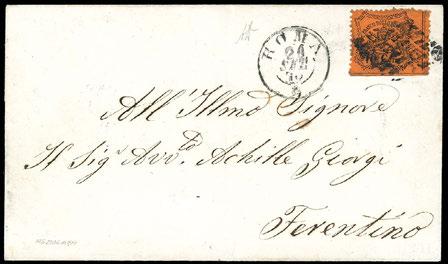 ROMA
24
SET
70
All' Illmo Signore
Il Sig Avv.to Achille Giorgi
Ferentino